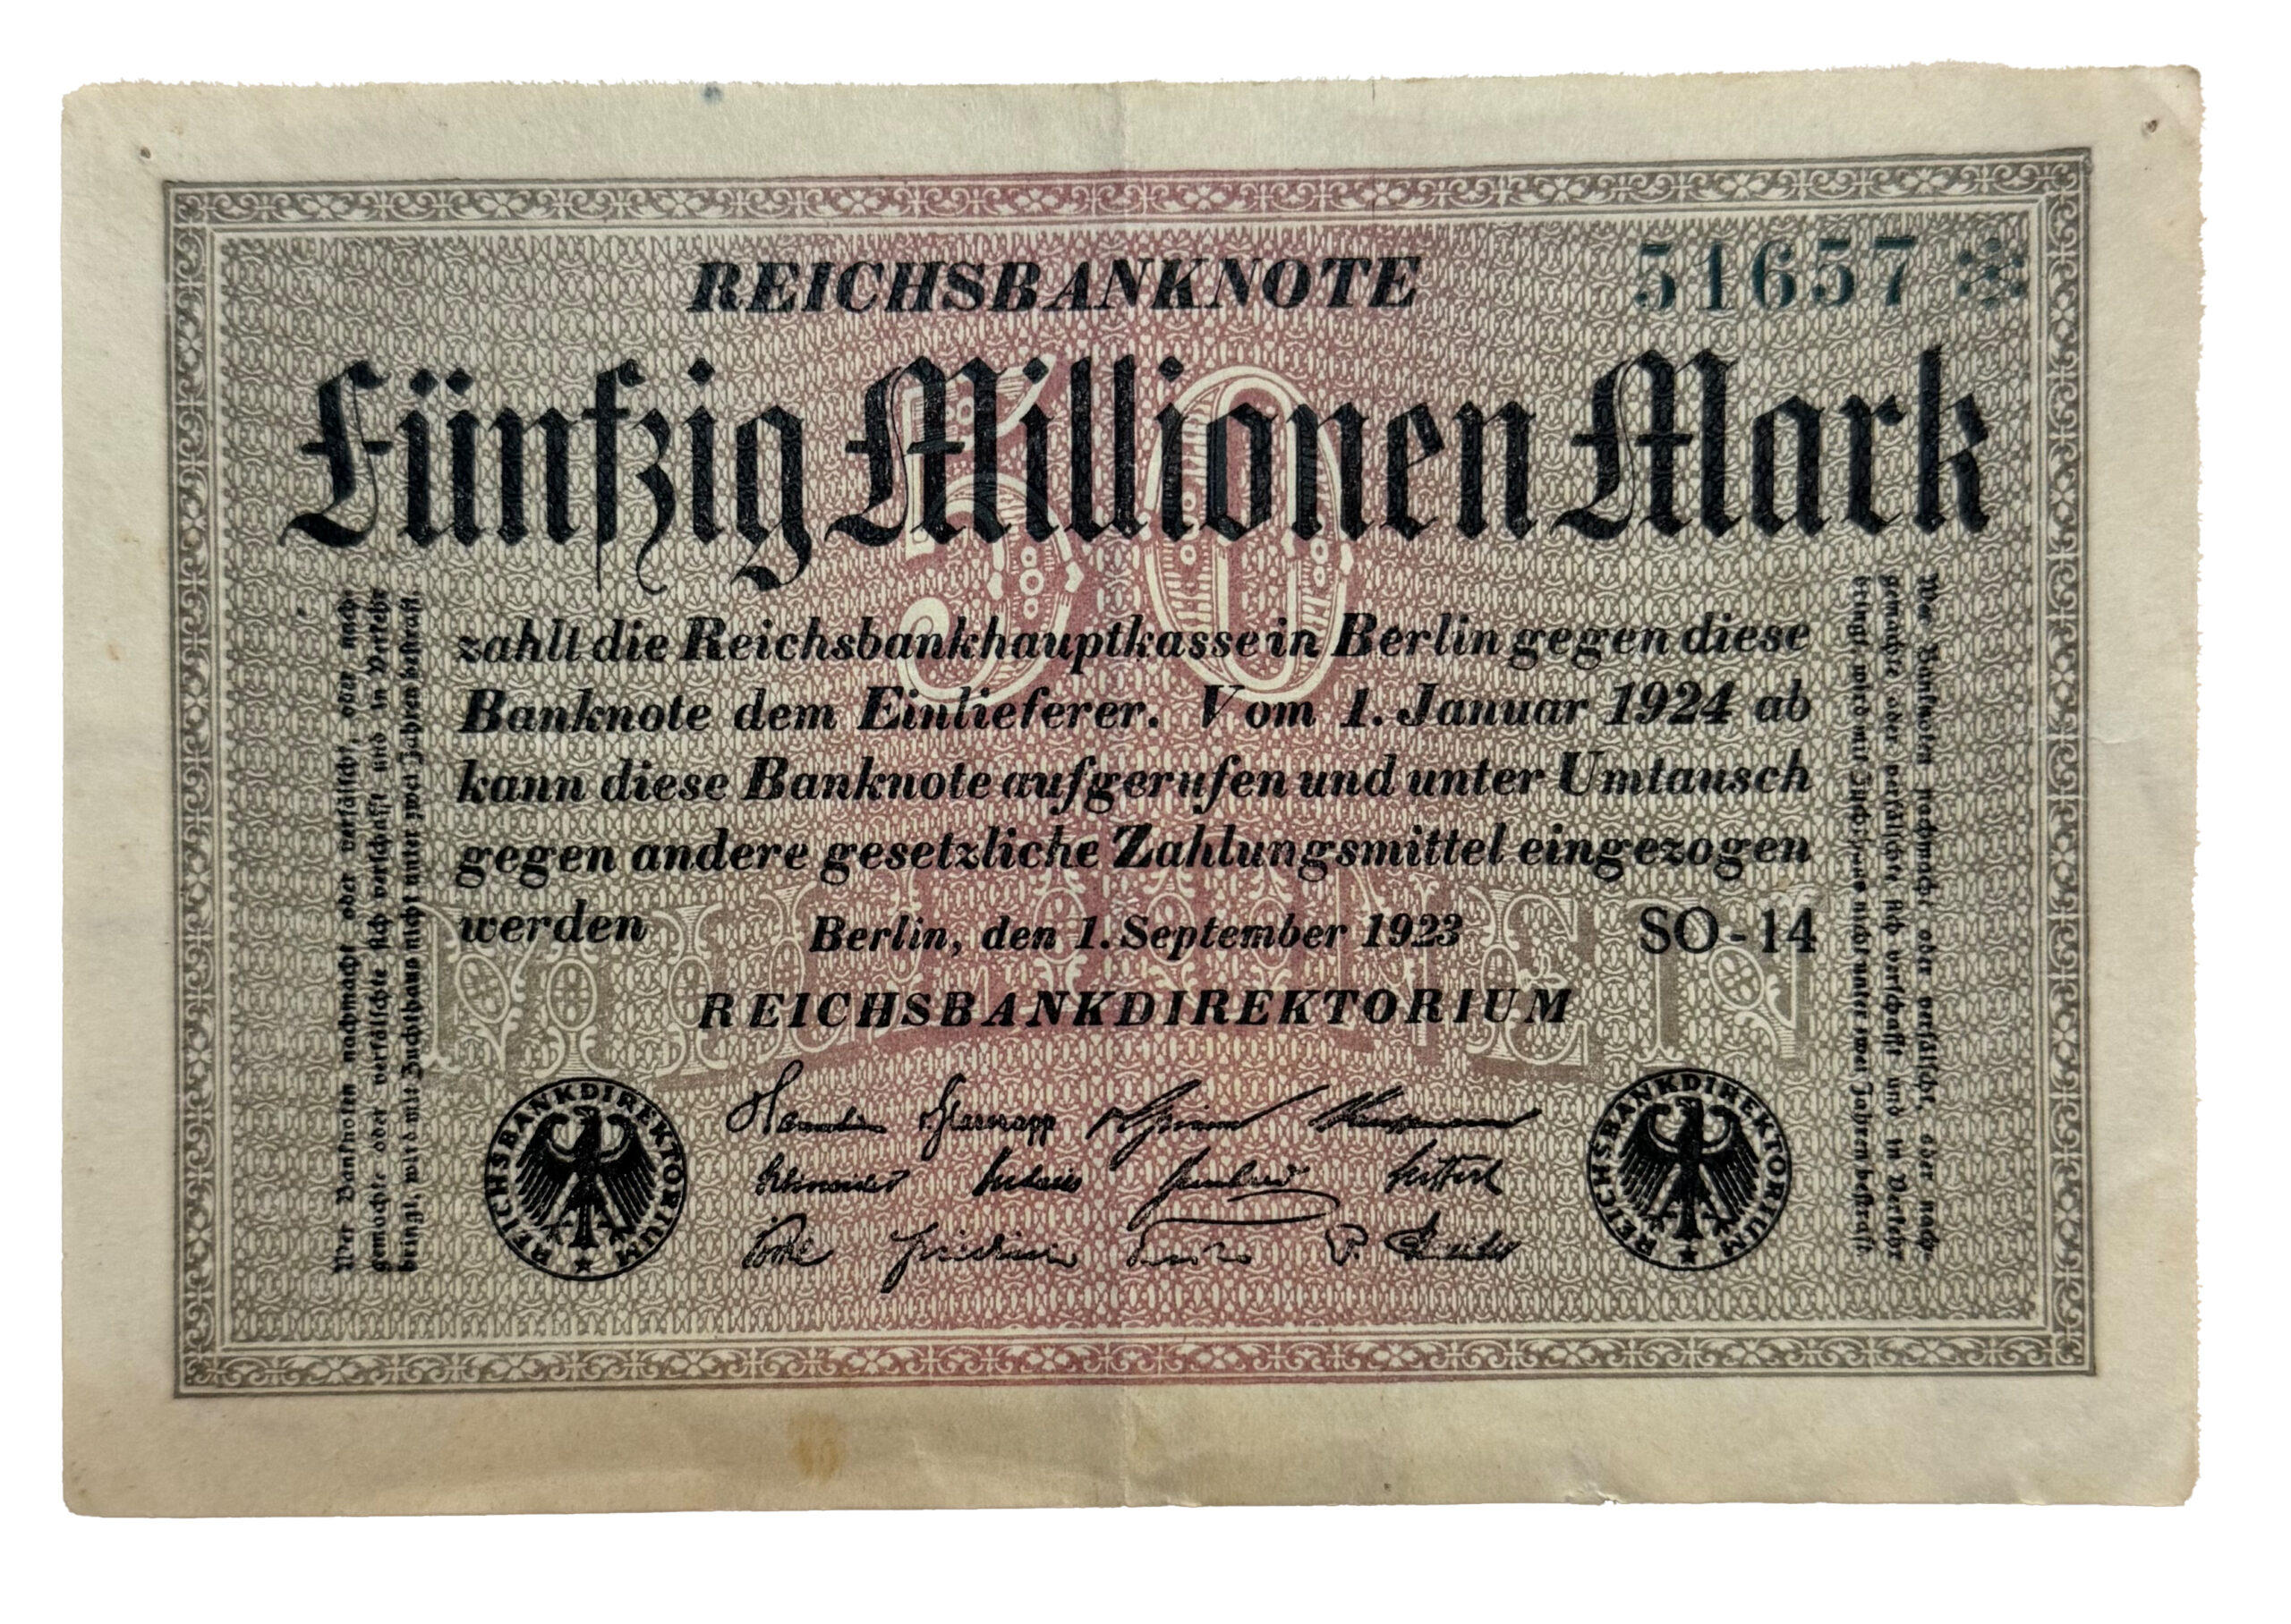 REICHSBANKNOTE
51657 *
Fünfzig Millionen Mark
50
zahlt die Reichsbankhauptkasse in Berlin gegen diese
Banknote dem Einlieferer. Vom 1. Januar 1924 ab
kann diese Banknote aufgerufen und unter Umtausch
gegen andere gesetzliche Zahlungsmittel eingezogen
werden
Berlin, den 1. September 1923
SO-14
MILLIONEN
REICHSBANKDIREKTORIUM
Wer Banknoten nachmacht oder verfälscht, oder nach-
gemachte oder verfälschte sich verschafft und in Verkehr
bringt, wird mit Zuchthaus nicht unter zwei Jahren bestraft.
Wer Banknoten nachmacht oder verfälscht, oder nach-
gemachte oder verfälschte sich verschafft und in Verkehr
bringt, wird mit Zuchthaus nicht unter zwei Jahren bestraft.
REICHSBANKDIREKTORIUM
v. Glasenapp
REICHSBANKDIREKTORIUM